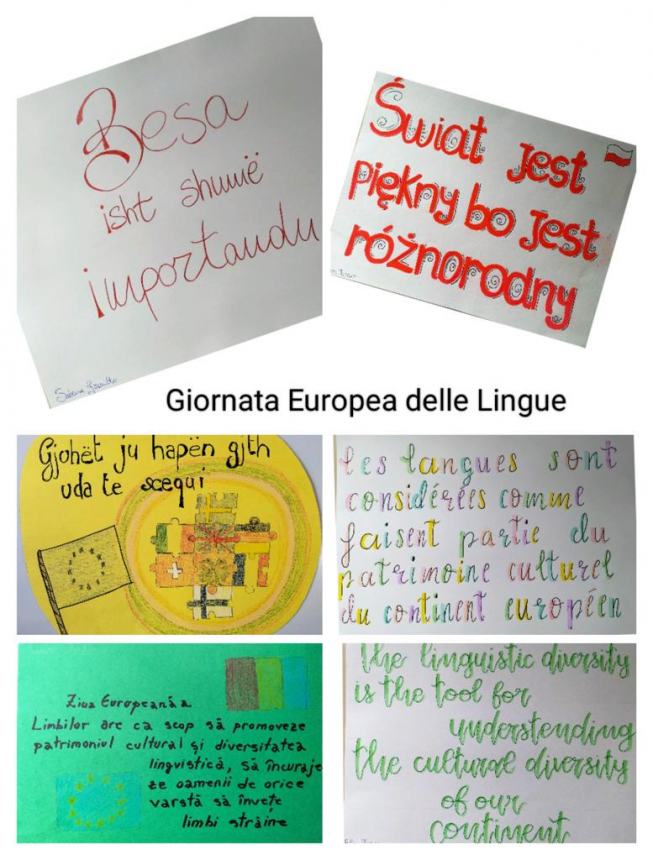 Besa
isht shumë
importandu
Świat jest
piękny bo jest
różnorodny
Giornata Europea delle Lingue
Gjuhët ju hapën gjth
uda te scequi
les langues sont
considérées comme
faisent partie du
patrimoine culturel
du continent européen
Ziua Europeană a
Limbilor are ca scop să promoveze
patrimoniul cultural și diversitatea
lingvistică, să încuraje
ze oamenii de orice
varstă să învețe
limbi străine
the linguistic diversity
is the tool for
understanding
the cultural diversity
of our
continent